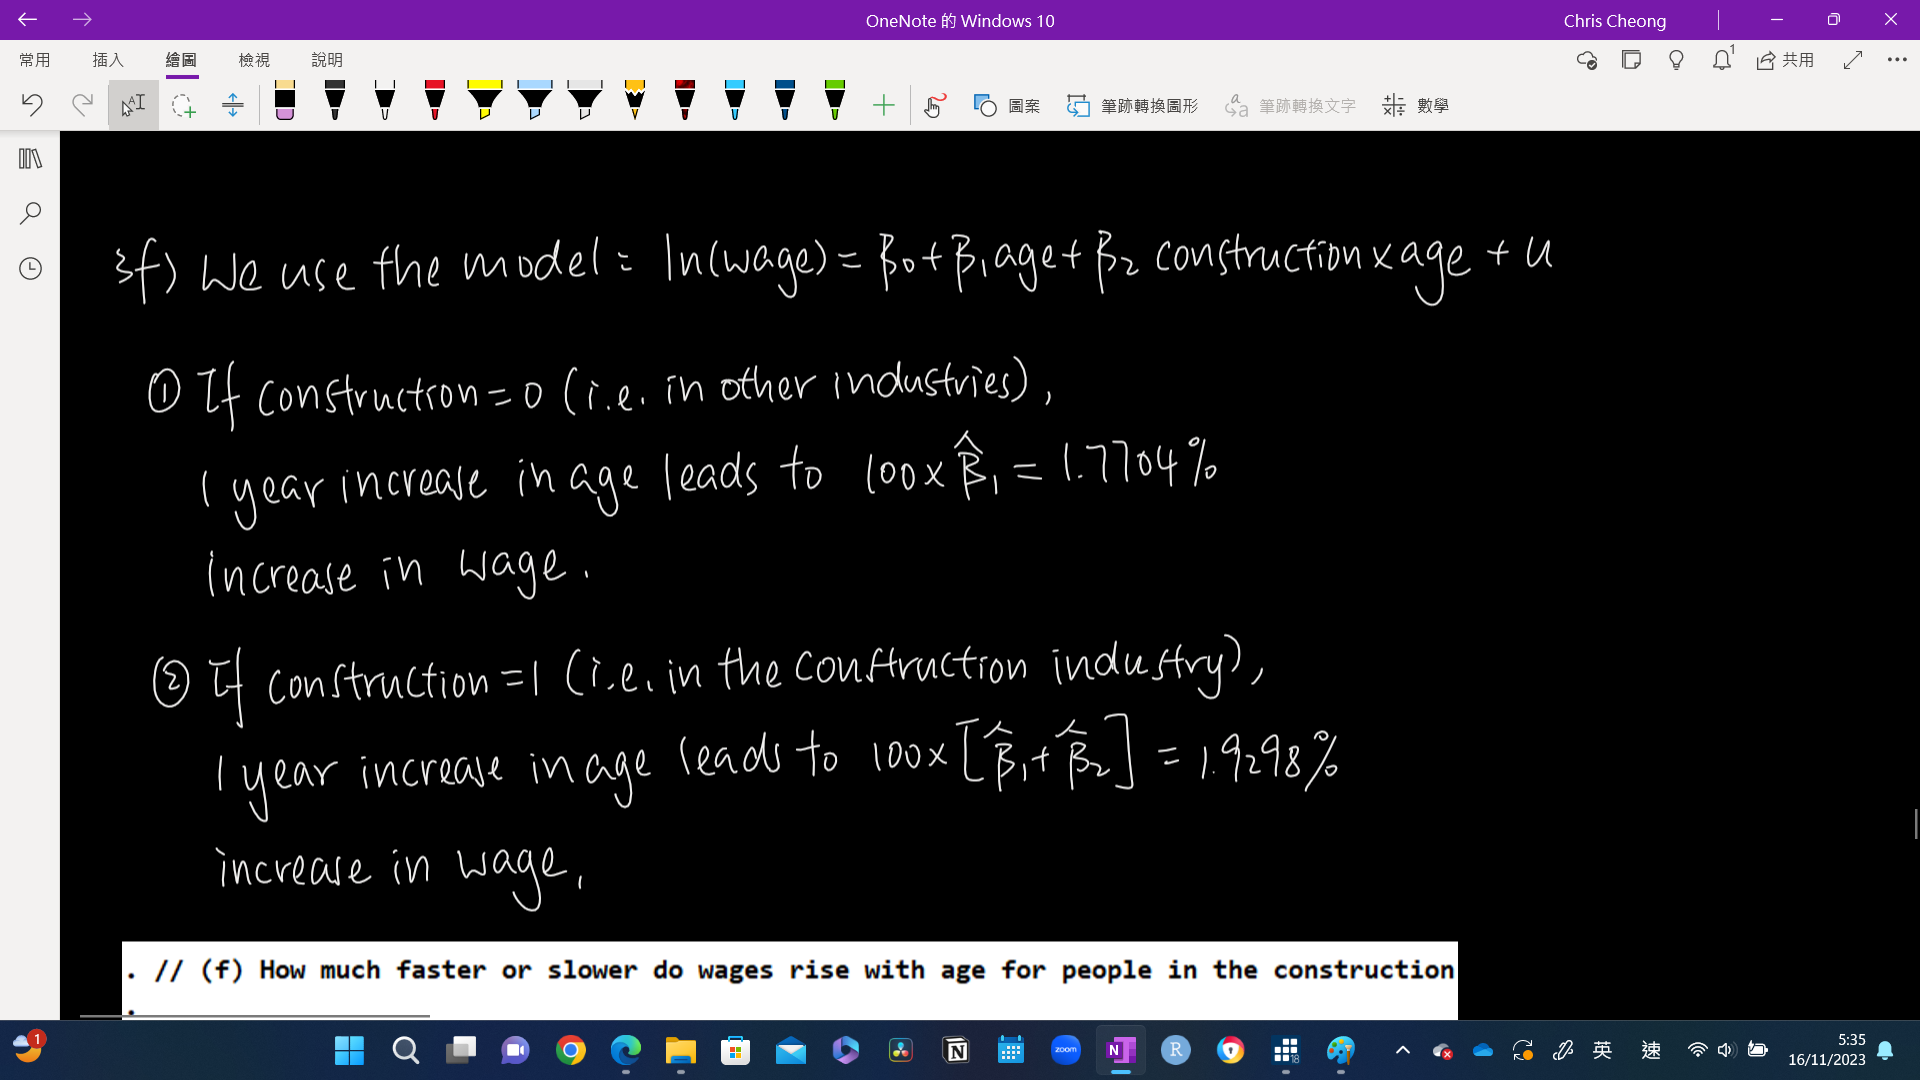 OneNote 的 Windows 10
Chris Cheong
常用 插入 繪圖 檢視 說明
1
共用
圖案 筆跡轉換圖形 筆跡轉換文字 數學
3f) We use the model: ln(wage) = β0 + β1 age + β2 construction x age + u
① If construction = 0 (i.e. in other industries),
1 year increase in age leads to 100 x β̂1 = 1.7704%
increase in wage.
② If construction = 1 (i.e. in the construction industry),
1 year increase in age leads to 100 x [β̂1 + β̂2] = 1.9298%
increase in wage.
. // (f) How much faster or slower do wages rise with age for people in the construction
.
1
zoom
N
N
R
18
英
速
5:35
16/11/2023